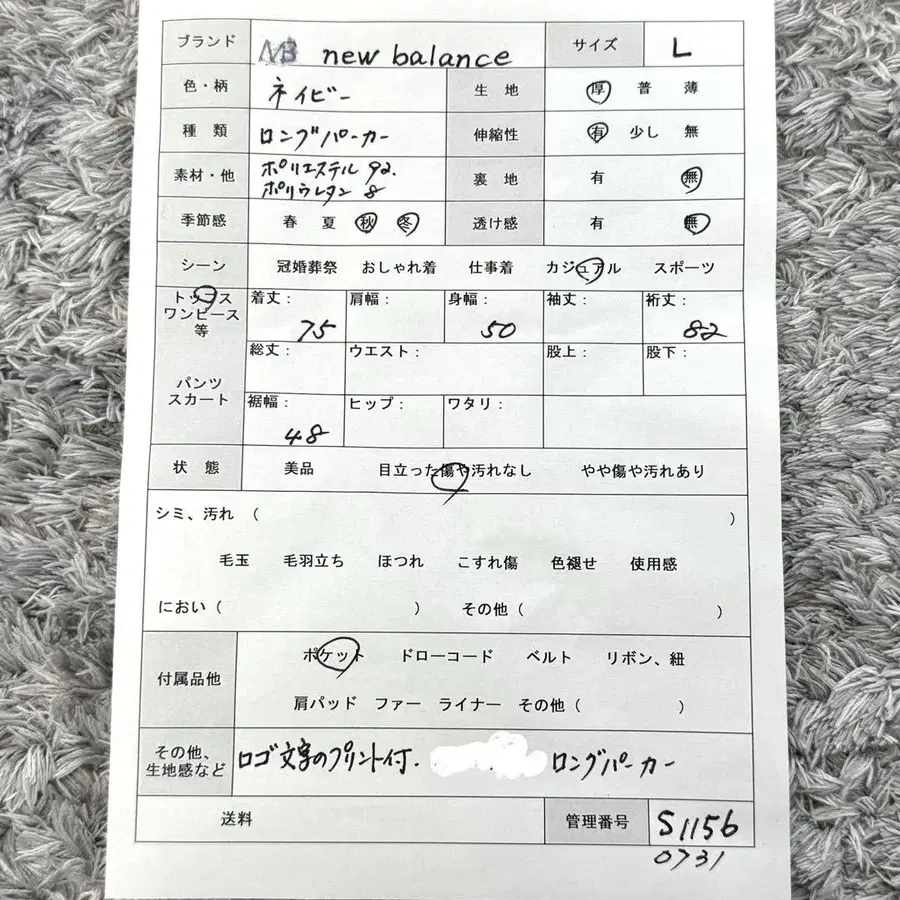 ブランド NB new balance サイズ L
色・柄 ネイビー 生地 厚 普 薄
種類 ロングパーカー 伸縮性 有 少し 無
素材・他 ポリエステル 92. 裏地 有 無
ポリウレタン 8
季節感 春 夏 秋 冬 透け感 有 無
シーン 冠婚葬祭 おしゃれ着 仕事着 カジュアル スポーツ
トップス 着丈: 肩幅: 身幅: 袖丈: 裄丈:
ワンピース
等 75 50 82
総丈: ウエスト: 股上: 股下:
パンツ
スカート 裾幅: ヒップ: ワタリ:
48
状態 美品 目立った傷や汚れなし やや傷や汚れあり
シミ、汚れ ( )
毛玉 毛羽立ち ほつれ こすれ傷 色褪せ 使用感
におい ( ) その他 ( )
付属品他 ポケット ドローコード ベルト リボン、紐
肩パッド ファー ライナー その他 ( )
その他、 ロゴ文字のプリント付. ロングパーカー
生地感など
送料 管理番号 S1156
0731